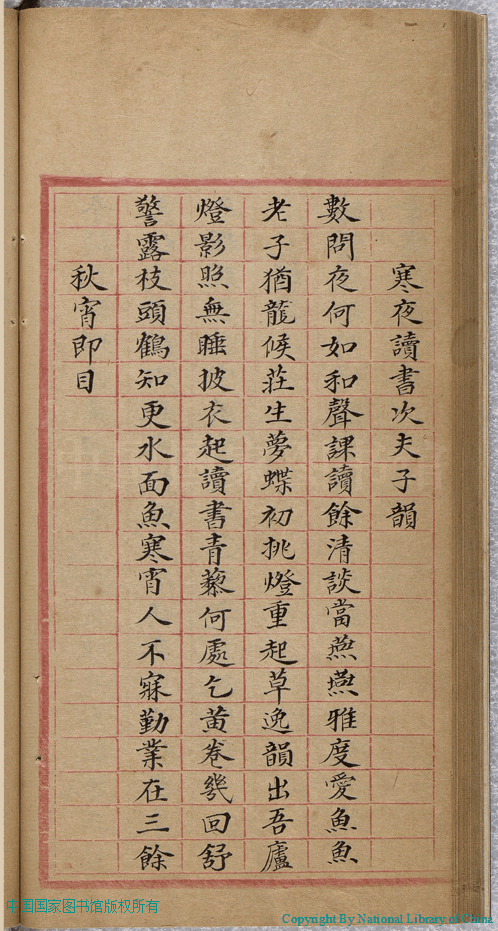 寒夜讀書次夫子韻
數問夜何如和聲課讀餘清談當燕燕雅度愛魚魚
老子猶龍候莊生夢蝶初挑燈重起草逸韻出吾廬
燈影照無睡披衣起讀書青藜何處乞黃卷幾回舒
警露枝頭鶴知更水面魚寒宵人不寐勤業在三餘
秋宵即目
中国国家图书馆版权所有
Copyright By National Library of China